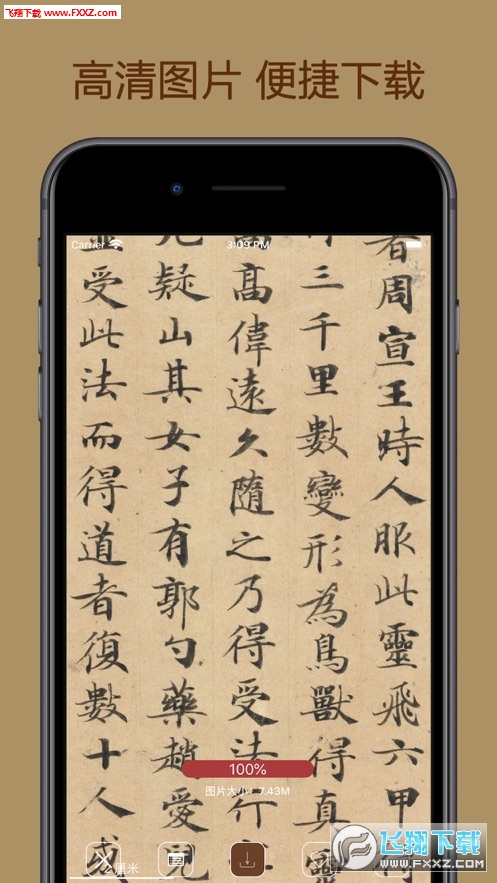 飞翔下载
www.FXXZ.com
高清图片 便捷下载
Carrier 3:09 PM
者周宣王時人服此靈飛六甲
三千里數變形為鳥獸得真靈
高偉遠久隨之乃得受法行
疑山其女子有郭勺藥趙愛兒
受此法而得道者復數十人或
100%
图片大小：7.43M
2厘米
飞翔下载
WWW.FXXZ.COM